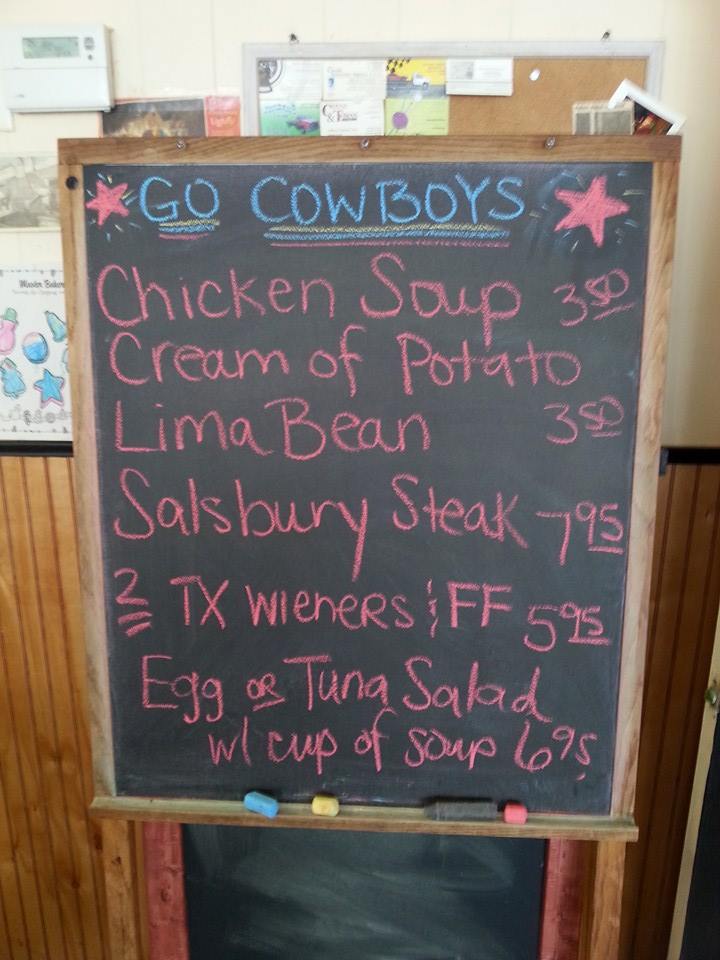 GO COWBOYS
Chicken Soup 3.50
Cream of Potato
Lima Bean 3.50
Salsbury Steak 7.95
2 TX Wieners & FF 5.95
Egg or Tuna Salad
w/ cup of soup 6.95